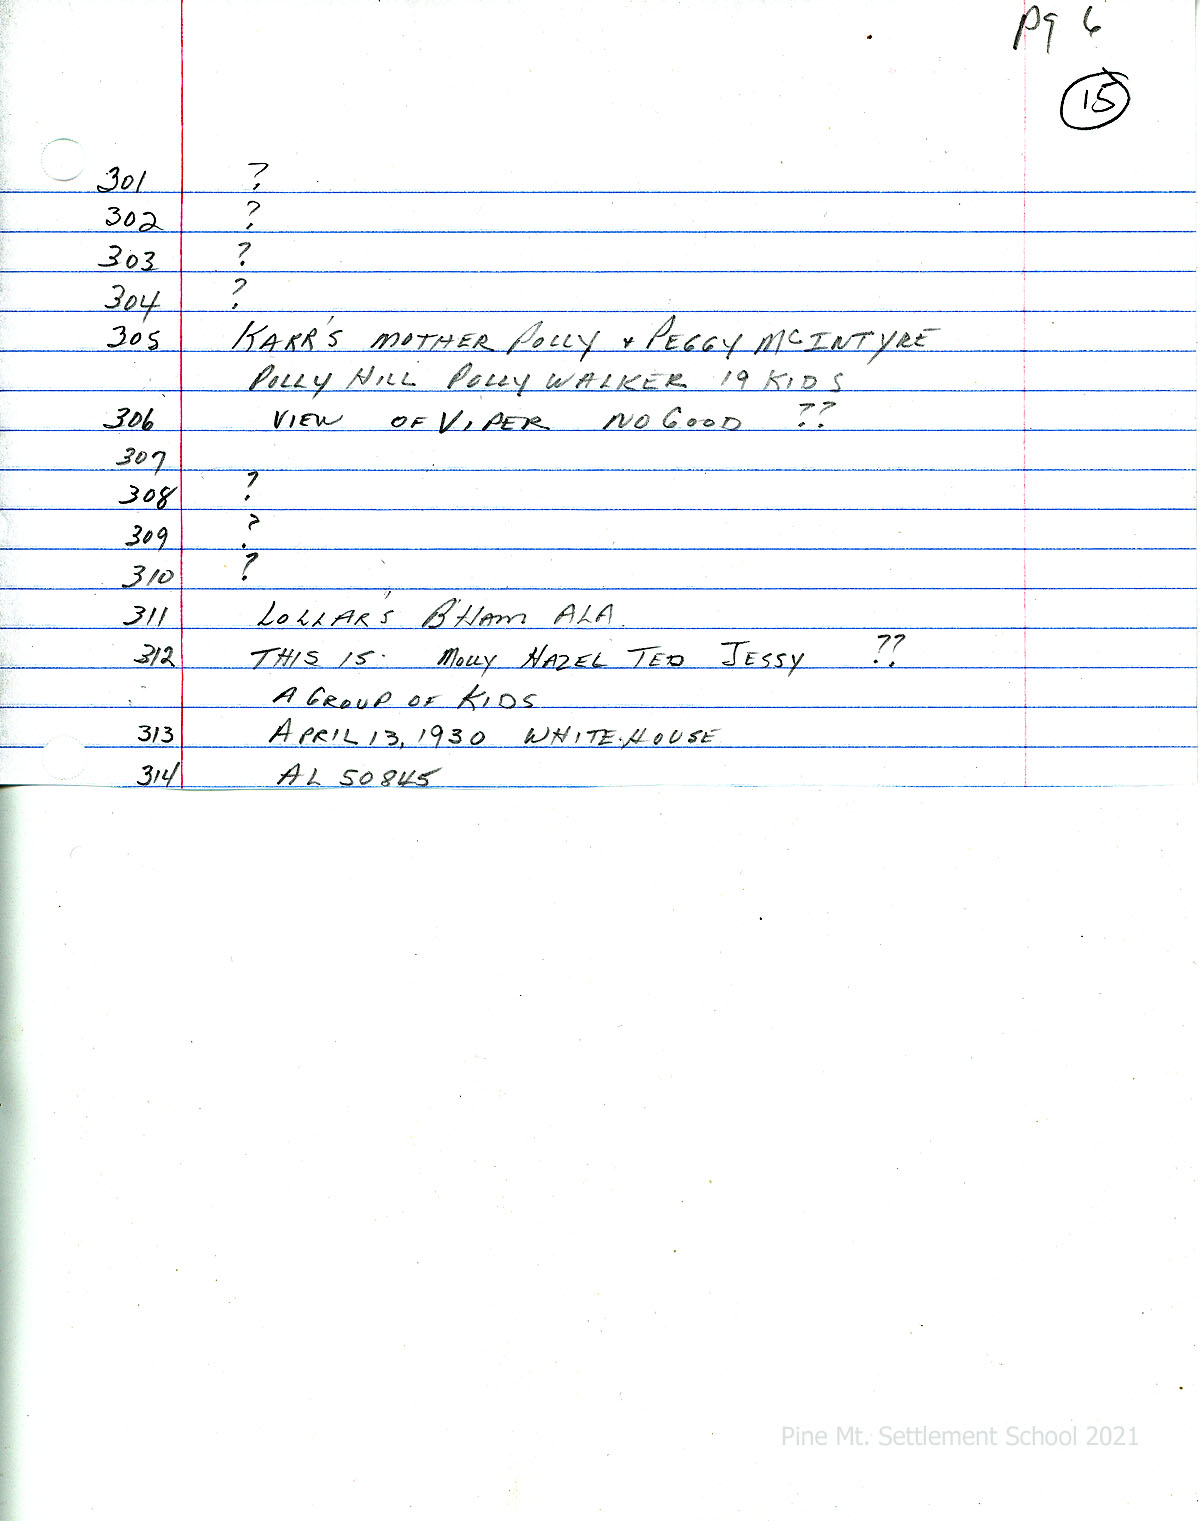 pg 6
15
301 ?
302 ?
303 ?
304 ?
305 KARR'S MOTHER POLLY & PEGGY MCINTYRE
POLLY HILL POLLY WALKER 19 KIDS
306 VIEW OF VIPER NO GOOD ??
307
308 ?
309 ?
310 ?
311 LOLLAR'S B'HAM ALA.
312 THIS IS. MOLLY HAZEL TED JESSY ??
A GROUP OF KIDS
313 APRIL 13, 1930 WHITE.HOUSE
314 AL 50845
Pine Mt. Settlement School 2021